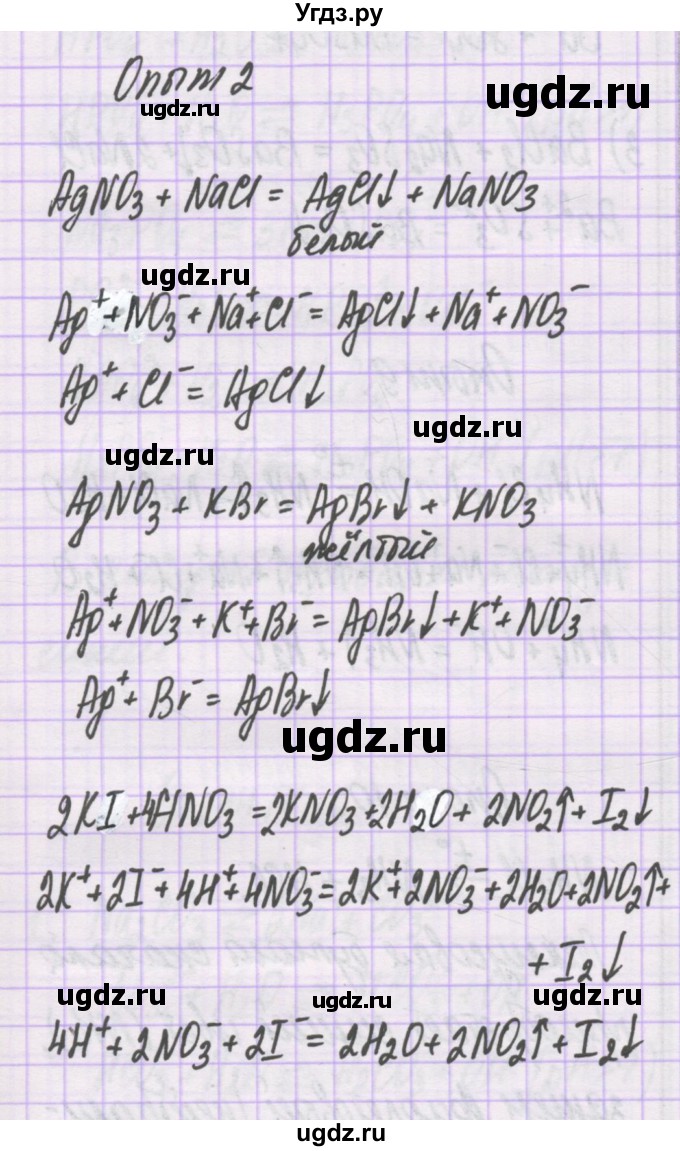 Угдз.ру
Опыт 2
ugdz.ru
ugdz.ru
AgNO₃ + NaCl = AgCl↓ + NaNO₃
белый
ugdz.ru
Ag⁺ + NO₃⁻ + Na⁺ + Cl⁻ = AgCl↓ + Na⁺ + NO₃⁻
Ag⁺ + Cl⁻ = AgCl↓
ugdz.ru
ugdz.ru
AgNO₃ + KBr = AgBr↓ + KNO₃
жёлтый
ugdz.ru
Ag⁺ + NO₃⁻ + K⁺ + Br⁻ = AgBr↓ + K⁺ + NO₃⁻
Ag⁺ + Br⁻ = AgBr↓
ugdz.ru
2KI + 4HNO₃ = 2KNO₃ + 2H₂O + 2NO₂↑ + I₂↓
2K⁺ + 2I⁻ + 4H⁺ + 4NO₃⁻ = 2K⁺ + 2NO₃⁻ + 2H₂O + 2NO₂↑ +
+ I₂↓
ugdz.ru
ugdz.ru
ugdz.ru
4H⁺ + 2NO₃⁻ + 2I⁻ = 2H₂O + 2NO₂↑ + I₂↓
ugdz.ru